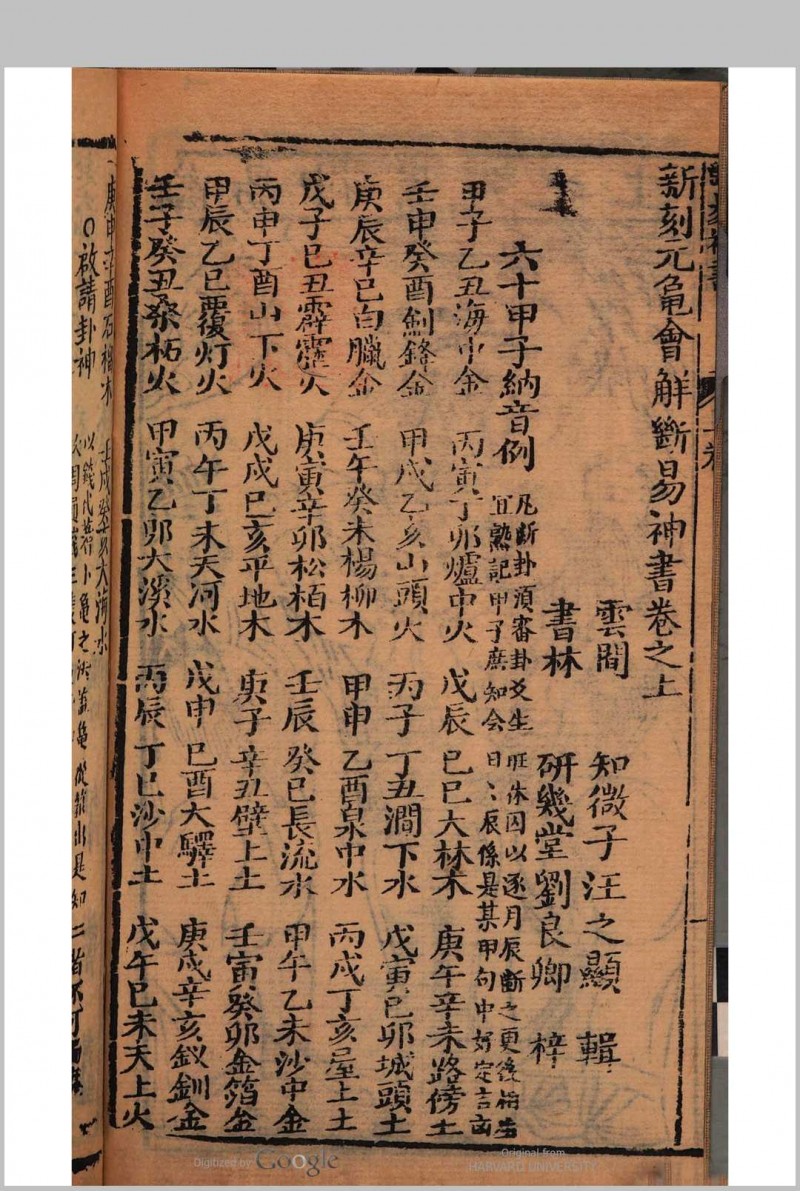 新刻元龜會解斷易神書卷之上
雲間　知微子汪之顯　輯
書林　研幾堂劉良卿　梓
六十甲子納音例
凡斷卦須審卦爻生旺休囚以逐月辰斷之更後
宜熟記甲子庶知会日〻辰係是某甲句中好定言
甲子乙丑海中金　丙寅丁卯爐中火　戊辰己巳大林木　庚午辛未路傍土
壬申癸酉劍鋒金　甲戌乙亥山頭火　丙子丁丑澗下水　戊寅己卯城頭土
庚辰辛巳白臘金　壬午癸未楊柳木　甲申乙酉泉中水　丙戌丁亥屋上土
戊子己丑霹靂火　庚寅辛卯松栢木　壬辰癸巳長流水　甲午乙未沙中金
丙申丁酉山下火　戊戌己亥平地木　庚子辛丑壁上土　壬寅癸卯金箔金
甲辰乙巳覆灯火　丙午丁未天河水　戊申己酉大驛土　庚戌辛亥釵釧金
壬子癸丑桑柘火　甲寅乙卯大溪水　丙辰丁巳沙中土　戊午己未天上火
庚申辛酉石榴木　壬戌癸亥大海水
○啟請卦神
以錢代蓍卜龜之法蓋龜從筮出是知二者不可
Digitized by Google
Original from
HARVARD UNIVERSITY